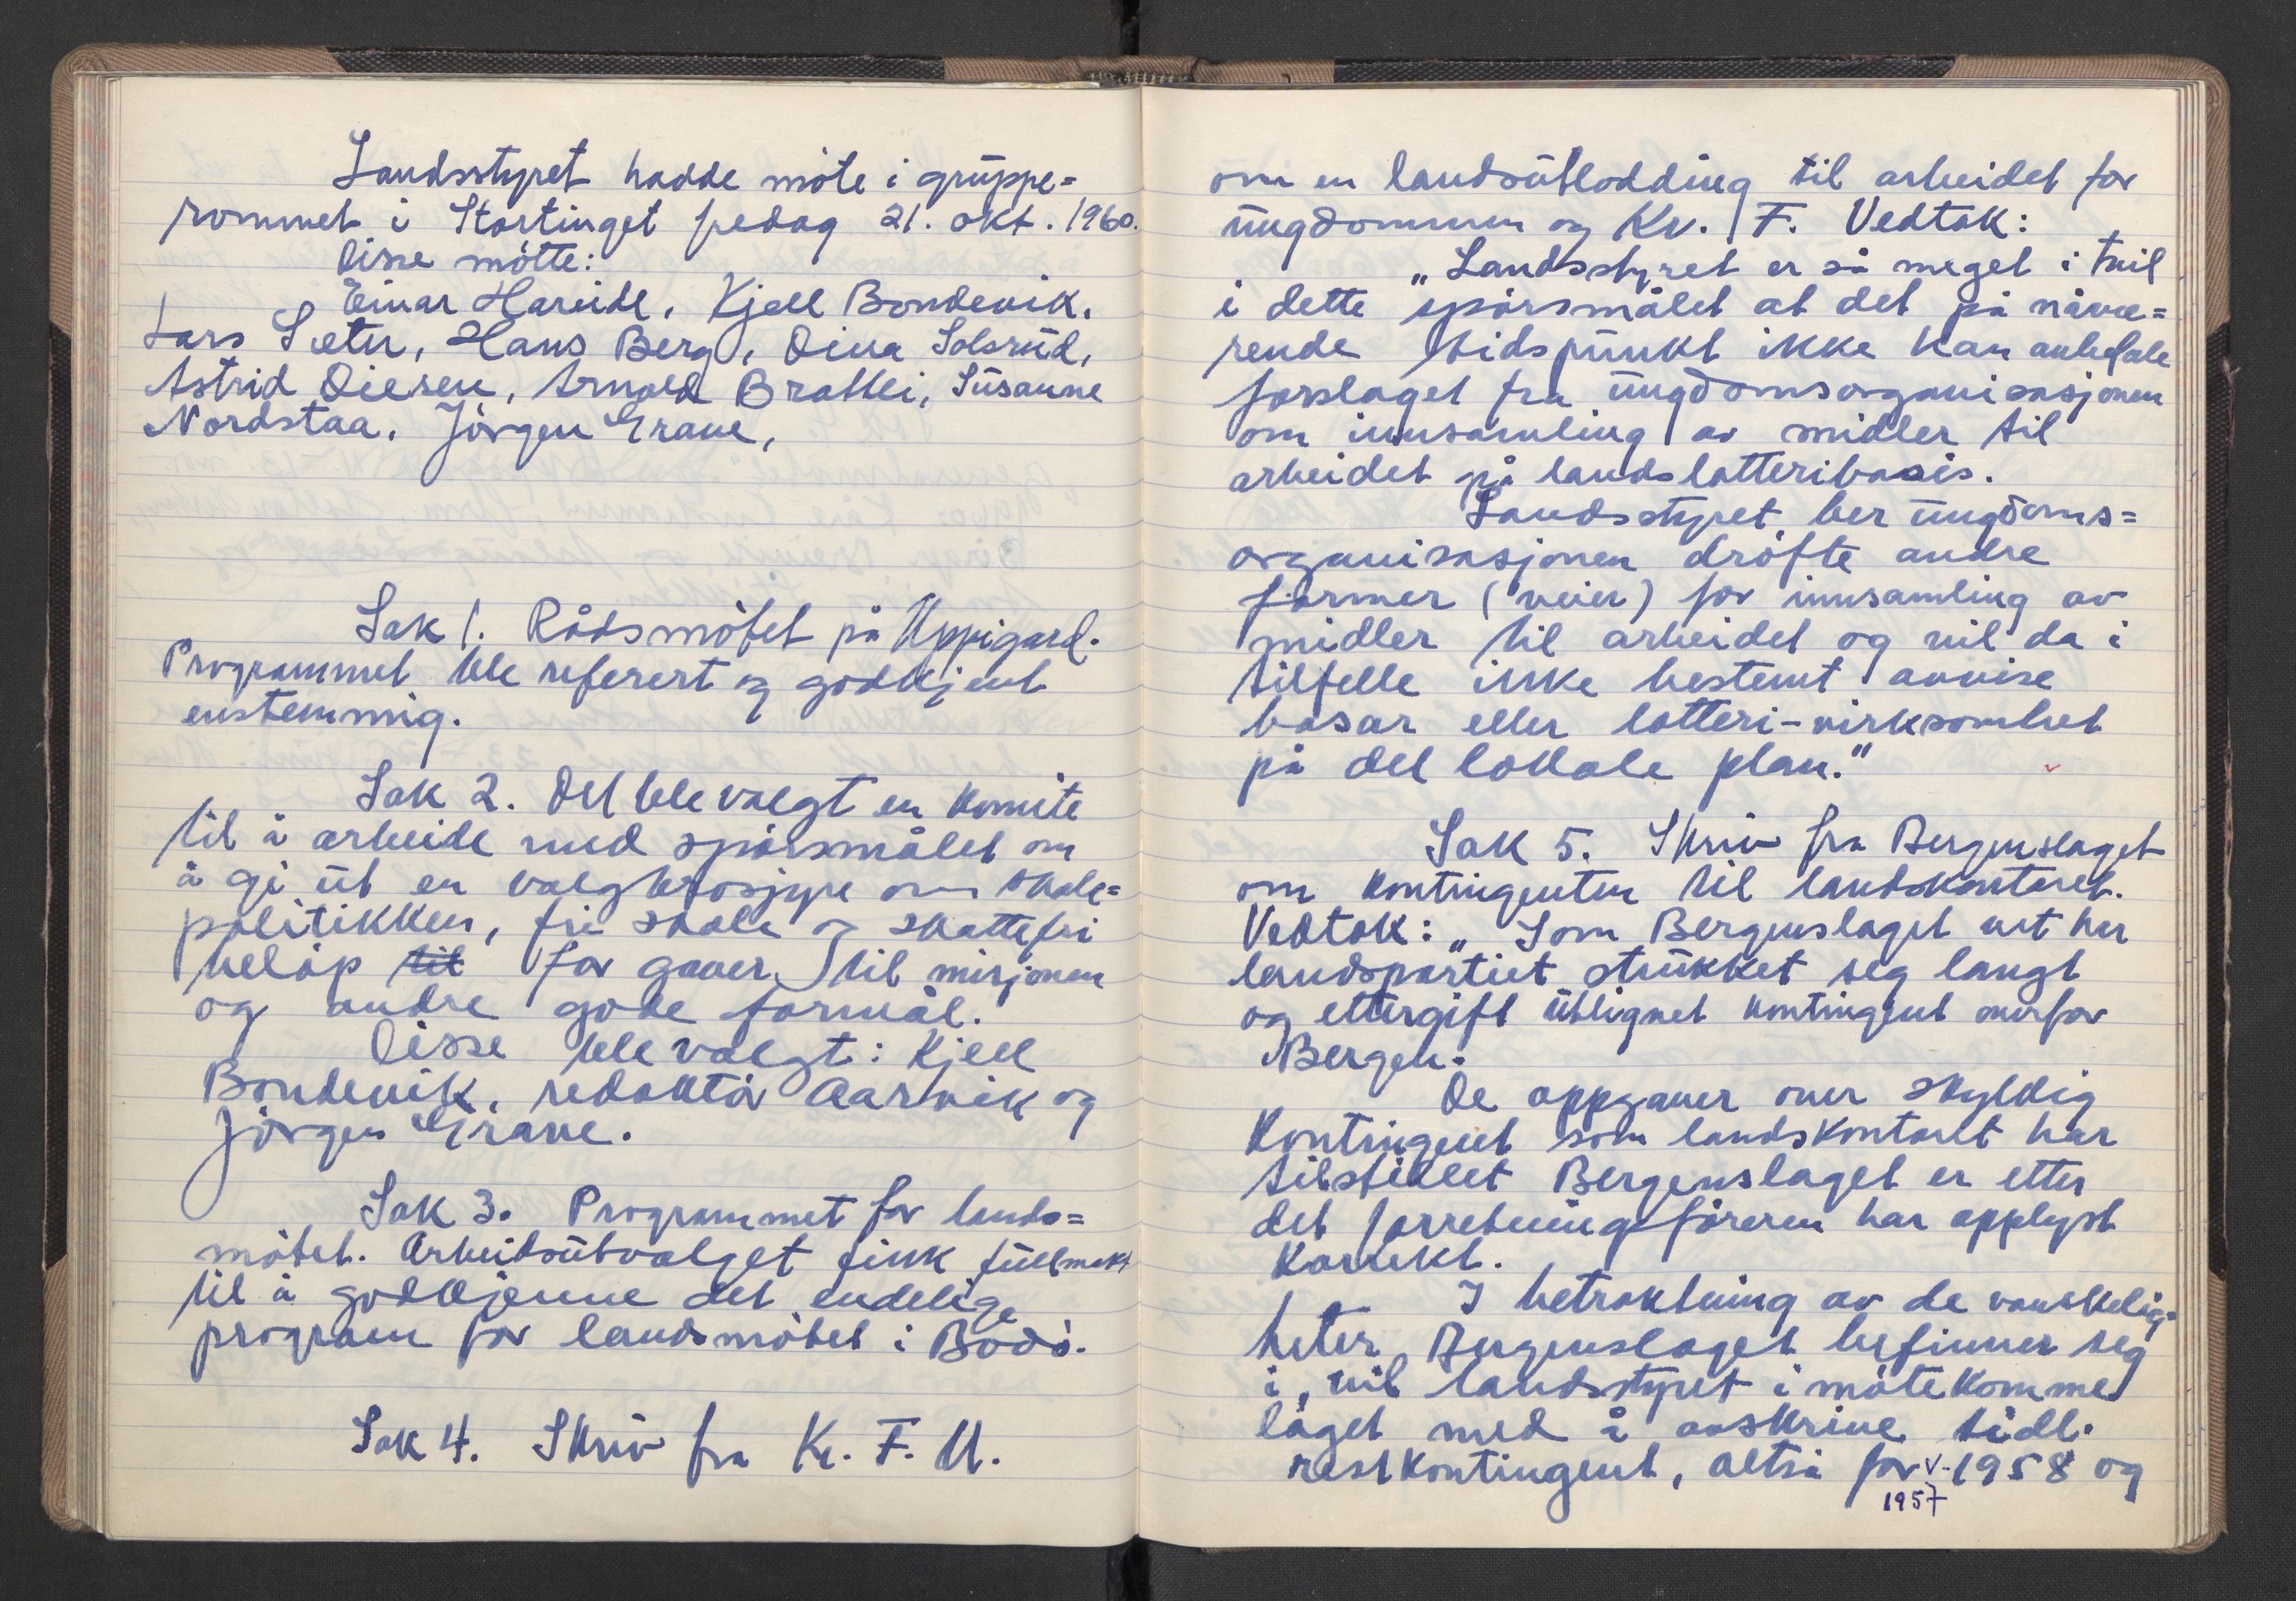 Landsstyret hadde möte i gruppe=
rommet i Stortinget fredag 21. okt. 1960.
Disse mötte:
Einar Hareide, Kjell Bondevik,
Lars Sæter, Hans Berg, Dina Solsrud,
Astrid Diesen, Arnold Brattli, Susanne
Nordstaa, Jörgen Grave,
Sak 1. Rådsmötet på Uppigard.
Programmet ble referert og godkjent
enstemmig.
Sak 2. Det ble valgt en komite
til å arbeide med spörsmålet om
å gi ut en valgbrosjyre om skole=
politikken, fri skole og skattefri
belöp til for gaver til misjonen
og andre gode formål.
Disse ble valgt: Kjell
Bondevik, redaktör Aarvik og
Jörgen Grave.
Sak 3. Programmet for lands=
mötet. Arbeidsutvalget fikk fullmakt
til å godkjenne det endelige
program for landsmötet i Bodö.
Sak 4. Skriv fra Kr. F. U.
om en landsutlodding til arbeidet for
ungdommen og Kr. F. Vedtok:
„Landsstyret er så meget i tvil
i dette spörsmålet at det på nåvæ=
rende tidspunkt ikke kan anbefale
forslaget fra ungdomsorganisasjonen
om innsamling av midler til
arbeidet på landslotteribasis.
Landsstyret ber ungdoms=
organisasjonen dröfte andre
former (veier) for innsamling av
midler til arbeidet og vil da i
tilfelle ikke bestemt avvise
basar eller lotteri-virksomhet
på det lokale plan."
Sak 5. Skriv fra Bergenslaget
om kontingenten til landskontoret.
Vedtok: „Som Bergenslaget vet har
landspartiet strukket seg langt
og ettergitt utlignet kontingent overfor
Bergen.
De oppgaver over skyldig
kontingent som landskontoret har
tilstillet Bergenslaget er etter
det forretningsföreren har opplyst
korrekt.
I betraktning av de vanskelig-
heter Bergenslaget befinner seg
i, vil landsstyret imötekomme
laget med å avskrive tidl.
restkontingent, altså for v. 1958 og
1957